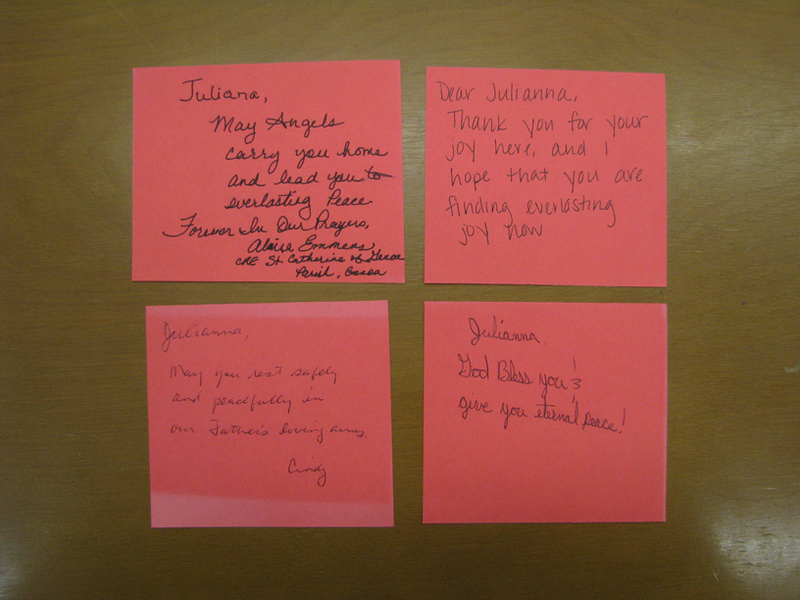 Juliana,
May Angels
carry you home
and lead you to
everlasting Peace
Forever In Our Prayers,
Emmens
CRE St Catherine of
Parish,
Dear Julianna,
Thank you for your
joy here, and I
hope that you are
finding everlasting
joy now
Julianna,
May you rest safely
and peacefully in
our Father's loving arms.
Cindy
Julianna.
God Bless you &
give you eternal peace!